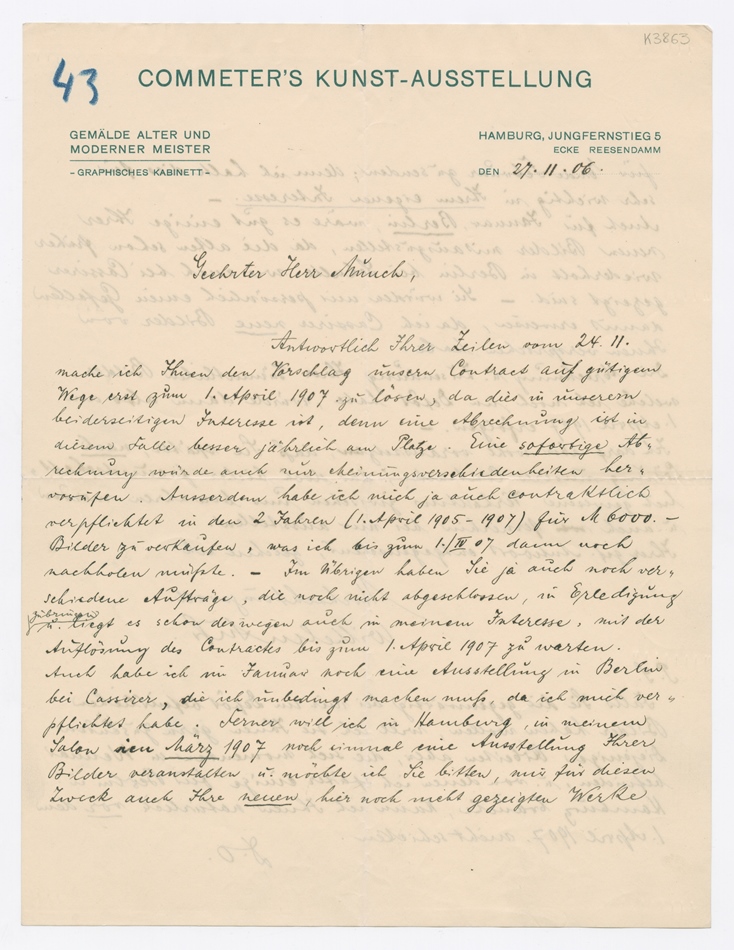 K3863
43
COMMETER'S KUNST-AUSSTELLUNG
GEMÄLDE ALTER UND
MODERNER MEISTER
- GRAPHISCHES KABINETT -
HAMBURG, JUNGFERNSTIEG 5
ECKE REESENDAMM
DEN 27.11.06.
Geehrter Herr Munch,
Antwortlich Ihrer Zeilen vom 24. 11.
mache ich Ihnen den Vorschlag unsern Contract auf gütigem
Wege erst zum 1. April 1907 zu lösen, da dies in unserem
beiderseitigen Interesse ist, denn eine Abrechnung ist in
diesem Falle besser jährlich am Platze. Eine sofortige Ab-
rechnung würde auch nur Meinungsverschiedenheiten her-
vorrufen. Ausserdem habe ich mich ja auch contraktlich
verpflichtet in den 2 Jahren (1. April 1905 - 1907) für M 6000. -
Bilder zu verkaufen, was ich bis zum 1./IV 07 dann noch
nachholen müsste. - Im Übrigen haben Sie ja auch noch ver-
schiedene Aufträge, die noch nicht abgeschlossen, in Erledigung
zu bringen
u. liegt es schon deswegen auch in meinem Interesse, mit der
Auflösung des Contracts bis zum 1. April 1907 zu warten.
Auch habe ich im Januar noch eine Ausstellung in Berlin
bei Cassirer, die ich unbedingt machen muss, da ich mich ver-
pflichtet habe. Ferner will ich in Hamburg, in meinem
Salon im März 1907 noch einmal eine Ausstellung Ihrer
Bilder veranstalten u. möchte ich Sie bitten, mir für diesen
Zweck auch Ihre neuen, hier noch nicht gezeigten Werke